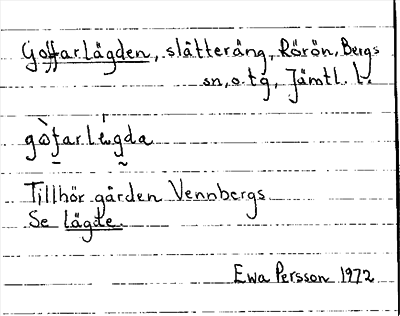 Goffarlägden, slåtteräng, Rörön, Bergs
sn, o.tg, Jämtl. l.
Tillhör gården Vennbergs
Se lägde.
Ewa Persson 1972